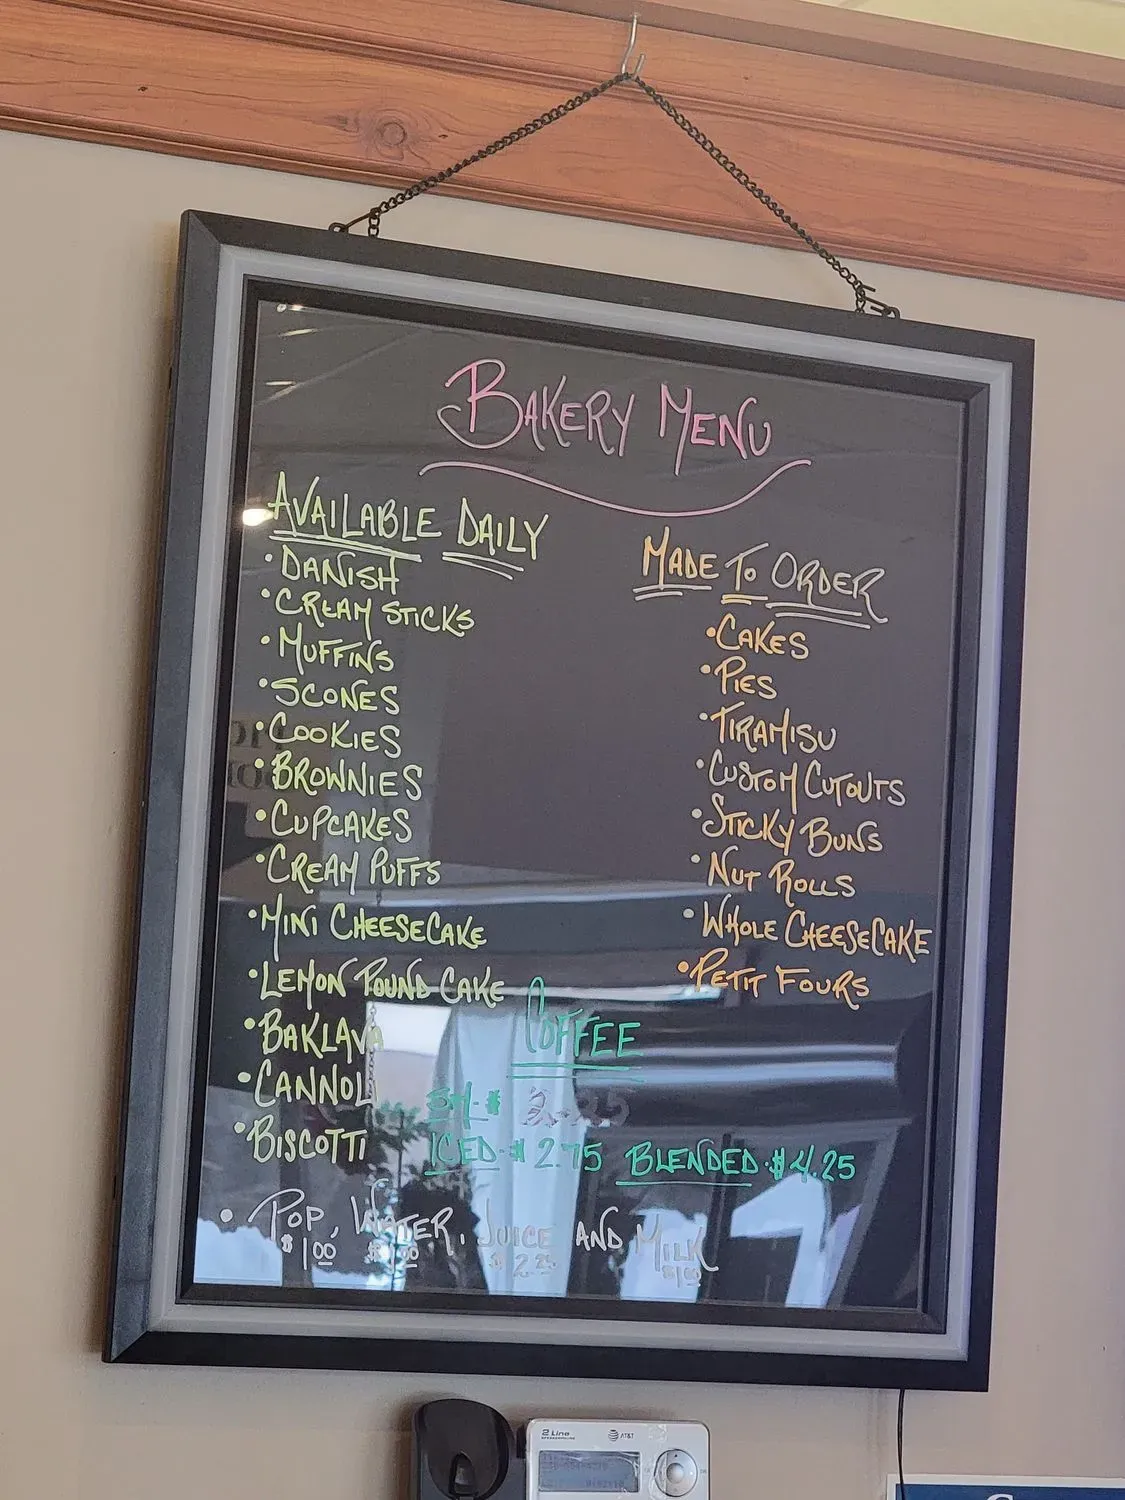 BAKERY MENU
AVAILABLE DAILY
• DANISH
• CREAM STICKS
• MUFFINS
• SCONES
• COOKIES
• BROWNIES
• CUPCAKES
• CREAM PUFFS
• MINI CHEESECAKE
• LEMON POUND CAKE
• BAKLAVA
• CANNOLI
• BISCOTTI
MADE TO ORDER
• CAKES
• PIES
• TIRAMISU
• CUSTOM CUTOUTS
• STICKY BUNS
• NUT ROLLS
• WHOLE CHEESECAKE
• PETIT FOURS
COFFEE
ICED - $2.75 BLENDED - $4.25
• POP, WATER, JUICE AND MILK
$1.00 $2.25 $1.00
2 Line
AT&T